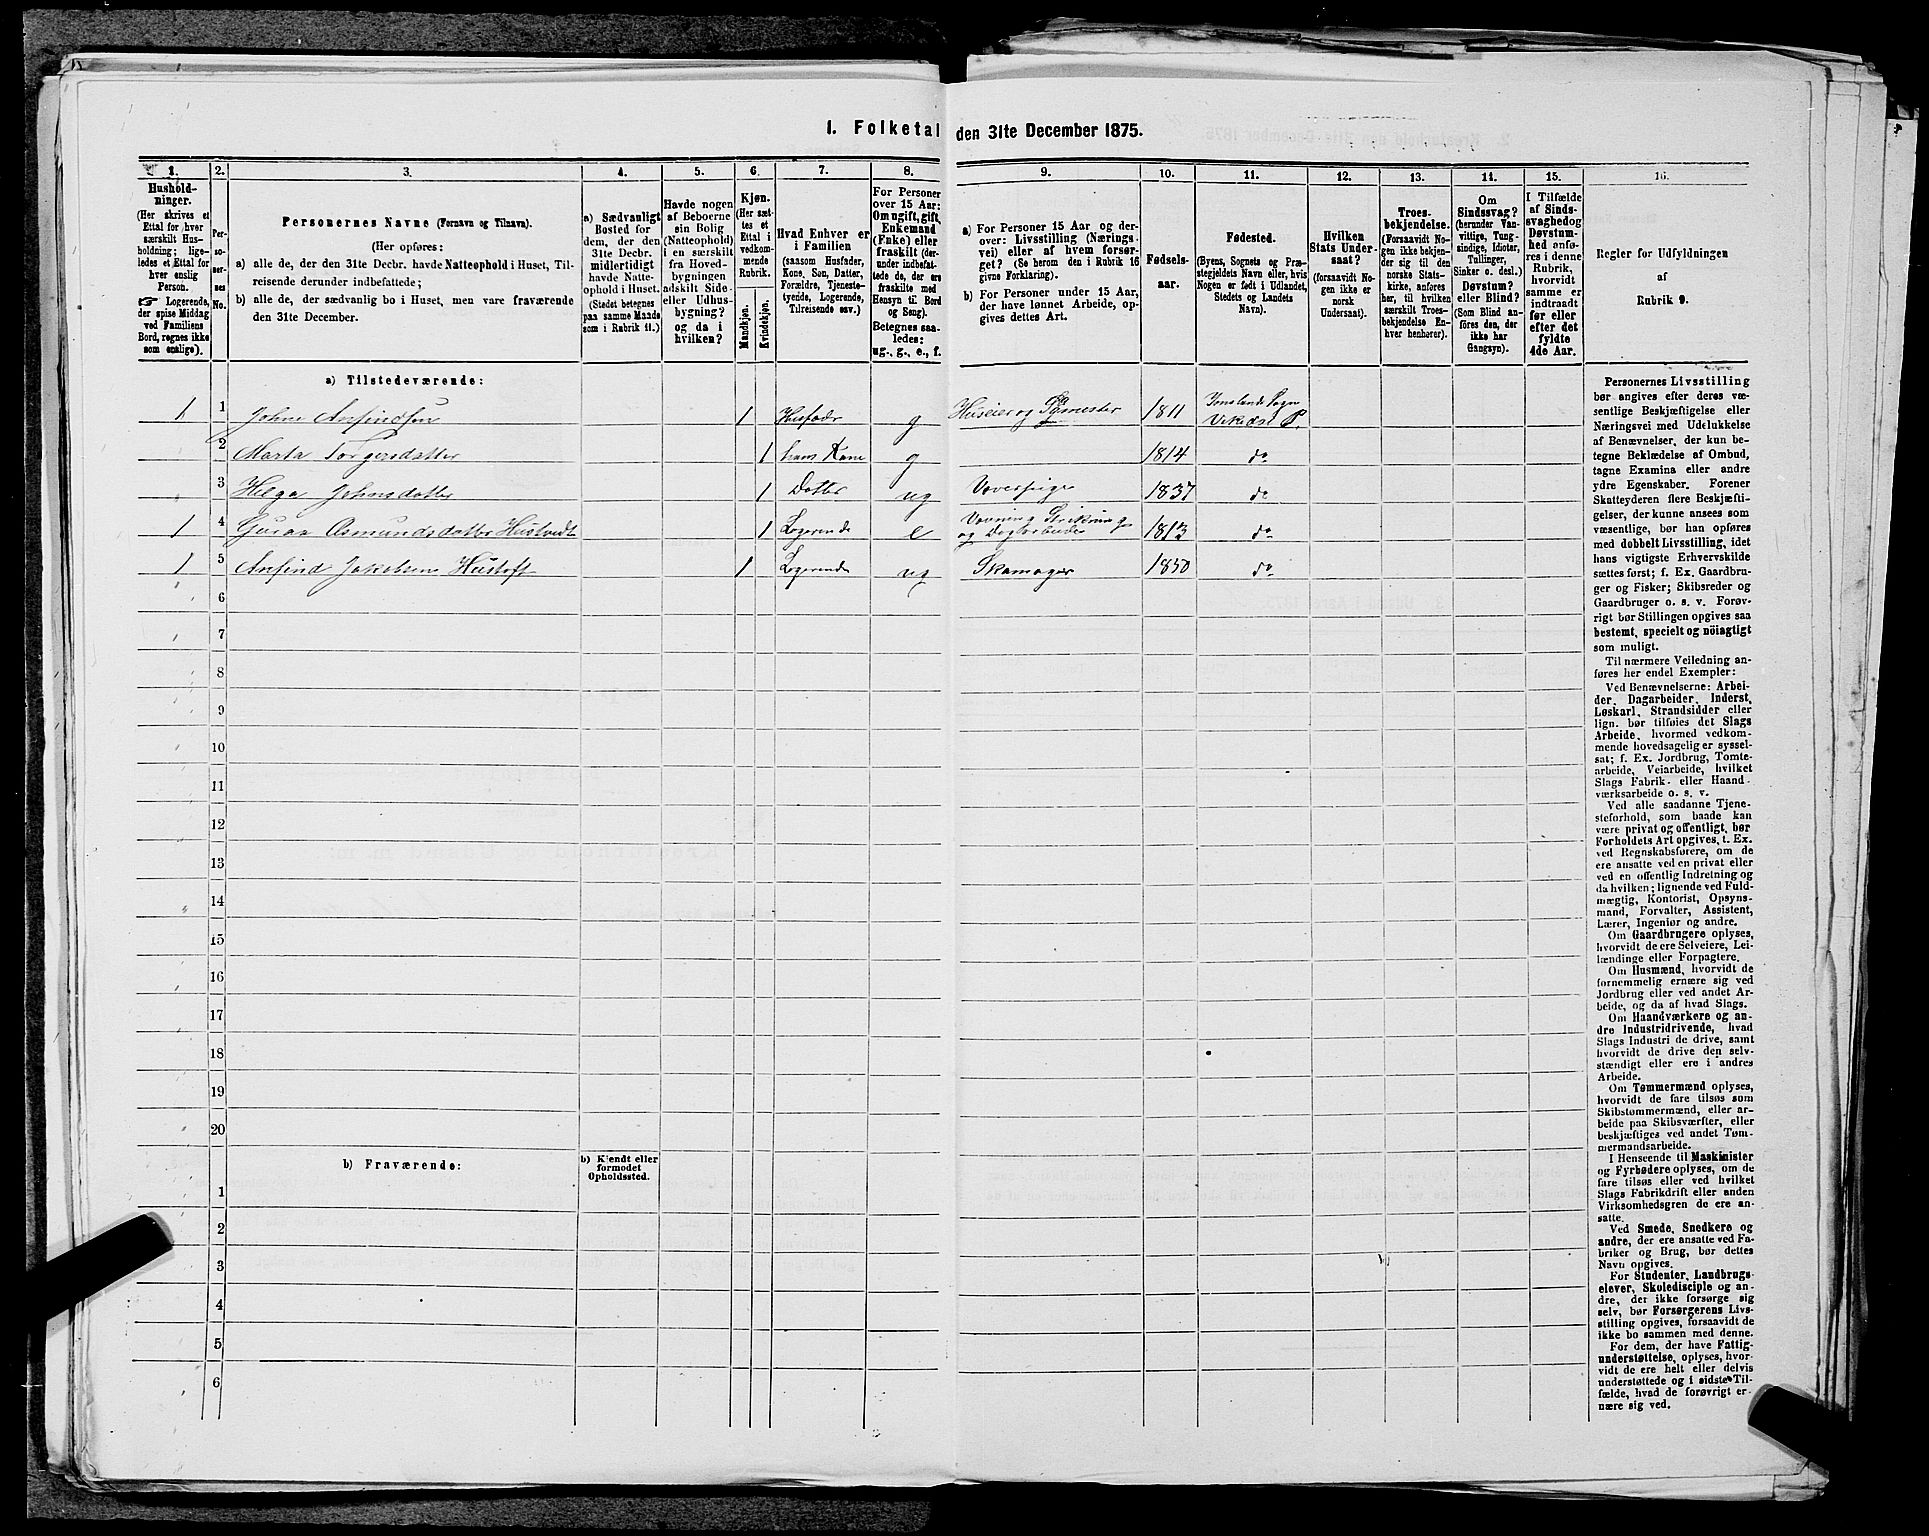 1. Folketal den 31te December 1875.
1. 2. 3. 4. 5. 6. 7. 8. 9. 10. 11. 12. 13. 14. 15. 16.
Hushold-
ninger.
(Her skrives et
Ettal for hver
særskilt Hus-
holdning; lige-
ledes et Ettal for
hver enslig
Person.
☞ Logerende,
der spise Middag
ved Familiens
Bord, regnes ikke
som enslige).
Per-
so-
ner-
nes
No.
Personernes Navne (Fornavn og Tilnavn).
(Her opføres:
a) alle de, der den 31te Decbr. havde Natteophold i Huset, Til-
reisende derunder indbefattede;
b) alle de, der sædvanlig bo i Huset, men vare fraværende
den 31te December.
a) Sædvanligt
Bosted for
dem, der den
31te Decbr.
midlertidigt
havde Natte-
ophold i Huset.
(Stedet betegnes
paa samme Maade
som i Rubrik 11.)
Havde nogen
af Beboerne
sin Bolig
(Natteophold)
i en særskilt
fra Hoved-
bygningen
adskilt Side-
eller Udhus-
bygning?
og da i
hvilken?
Kjøn.
(Her sæt-
tes et
Ettal i
vedkom-
mende
Rubrik.
Mandkjøn.
Kvindekjøn.
Hvad Enhver er
i Familien
(saasom Husfader,
Kone, Søn, Datter,
Forældre, Tjeneste-
tyende, Logerende,
Tilreisende osv.)
For Personer
over 15 Aar:
Om ugift, gift,
Enkemand
(Enke) eller
fraskilt (der-
under indbefat-
tede de, der ere
fraskilte med
Hensyn til Bord
og Seng).
Betegnes saa-
ledes:
ug., g., e., f.
a) For Personer 15 Aar og der-
over: Livsstilling (Nærings-
vei) eller af hvem forsør-
get? (Se herom den i Rubrik 16
givne Forklaring).
b) For Personer under 15 Aar,
der have lønnet Arbeide, op-
gives dettes Art.
Fødsels-
aar.
Fødested.
(Byens, Sognets og Præ-
stegjeldets Navn eller, hvis
Nogen er født i Udlandet,
Stedets og Landets
Navn).
Hvilken
Stats Under-
saat?
(forsaavidt No-
gen ikke er
norsk
Undersaat).
Troes-
bekjendelse.
(Forsaavidt No-
gen ikke bekjen-
der sig til den
norske Stats-
kirke, anføres
her, til hvilken
særskilt Troes-
bekjendelse En-
hver henhører).
Om
Sindssvag?
(herunder Van-
vittige, Tung-
sindige, Idioter,
Tullinger,
Sinker o. desl.)
Døvstum?
eller Blind?
(Som Blind an-
føres den, der
ikke har
Gangsyn).
I Tilfælde
af Sinds-
svaghed og
Døvstum-
hed anfø-
res i denne
Rubrik,
hvorvidt
samme er
indtraadt
før eller
efter det
fyldte
4de Aar.
Regler for Udfyldningen
af
Rubrik 9.
a) Tilstedeværende:
1 1 Johne Anfindsen 1 Husfadr g Huseier og 1811 Sogn
Vikedal P.
2 Marta Torgersdatter 1 hans Kone g 1814 do
3 Helga Johnsdatter 1 Datter ug Væverpige 1837 do
1 4 Guroa Osmundsdatter Hustvedt 1 Logerende e Vævning Strikning
og Dagarbeide 1813 do
1 5 Anfind Jakobsen Hustoft 1 Logerende ug Skomager 1850 do
6
7
8
9
10
11
12
13
14
15
16
17
18
19
20
b) Fraværende:
b) Kjendt eller
formodet
Opholdssted.
1
2
3
4
5
6
Personernes Livsstilling
bør angives efter deres væ-
sentlige Beskjæftigelse eller
Næringsvei med Udelukkelse
af Benævnelser, der kun be-
tegne Beklædelse af Ombud,
tagne Examina eller andre
ydre Egenskaber. Forener
Skatteyderen flere Beskjæfti-
gelser, der kunne ansees som
væsentlige, bør han opføres
med dobbelt Livsstilling, idet
hans vigtigste Erhvervskilde
sættes først; f. Ex. Gaardbru-
ger og Fisker; Skibsreder og
Gaardbruger o. s. v. Forøv-
rigt bør Stillingen opgives saa
bestemt, specielt og nöiagtigt
som muligt.
Til nærmere Veiledning an-
føres her endel Exempler:
Ved Benævnelserne: Arbei-
der, Dagarbeider, Inderst,
Løskarl, Strandsidder eller
lign. bør tilføies det Slags
Arbeide, hvormed vedkom-
mende hovedsagelig er syssel-
sat; f. Ex. Jordbrug, Tomte-
arbeide, Veiarbeide, hvilket
Slags Fabrik- eller Haand-
værksarbeide o. s. v.
Ved alle saadanne Tjene-
steforhold, som baade kan
være privat og offentligt, bør
Forholdets Art opgives, t. Ex.
ved Regnskabsførere, om de
ere ansatte ved en privat eller
ved en offentlig Indretning og
da hvilken; lignende ved Fuld-
mægtig, Kontorist, Opsyns-
mand, Forvalter, Assistent,
Lærer, Ingeniør og andre.
Om Gaardbrugere oplyses,
hvorvidt de ere Selveiere, Lei-
lændinge eller Forpagtere.
Om Husmænd, hvorvidt de
fornemmelig ernære sig ved
Jordbrug eller ved andet Ar-
beide, og da af hvad Slags.
Om Haandværkere og an-
dre Industridrivende, hvad
Slags Industri de drive, samt
hvorvidt de drive den selv-
stændigt eller ere i andres
Arbeide.
Om Tømmermænd oplyses,
hvorvidt de fare tilsøs som
Skibstømmermænd, eller ar-
beide paa Skibsværfter, eller
beskjæftiges ved andet Tøm-
mermandsarbeide.
I Henseende til Maskinister
og Fyrbødere oplyses, om de
fare tilsøs eller ved hvilket
Slags Fabrikdrift eller anden
Virksomhedsgren de ere an-
satte.
Ved Smede, Snedkere og
andre, der ere ansatte ved Fa-
briker og Brug, bør dettes
Navn opgives.
For Studenter, Landbrugs-
elever, Skoledisciple og an-
dre, der ikke forsørge sig
selv, bør Forsørgerens Livs-
stilling opgives, forsaavidt de
ikke bo sammen med denne.
For dem, der have Fattig-
understøttelse, oplyses, hvor-
vidt de ere helt eller delvis
understøttede og i sidste Til-
fælde, hvad de forøvrigt er-
nære sig ved.